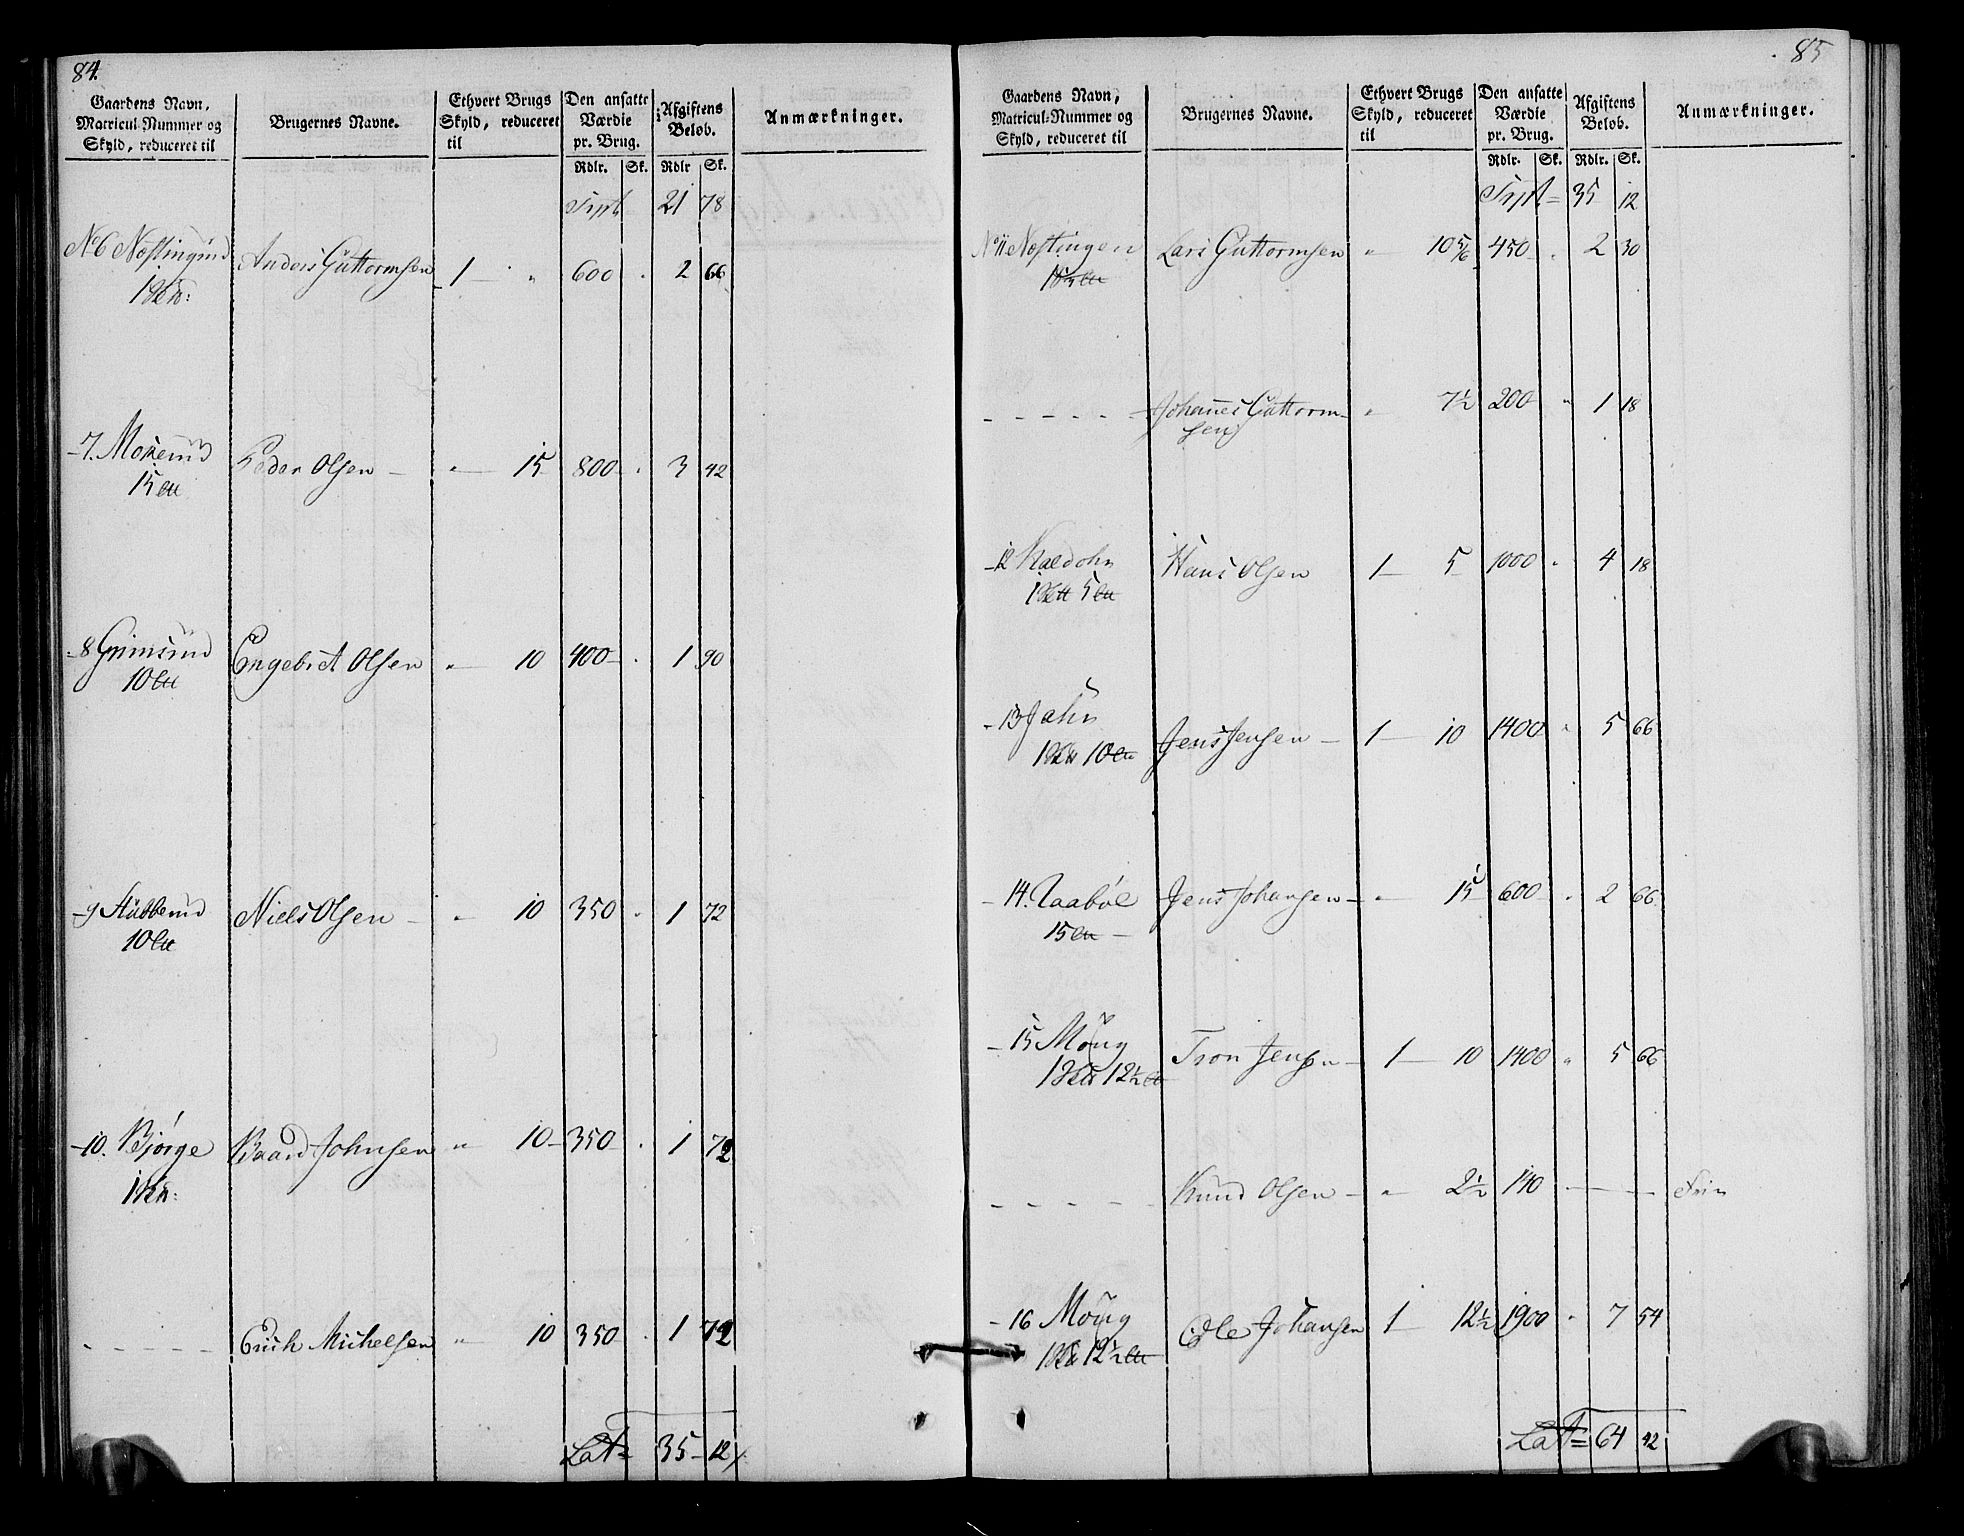 84.
Gaardens Navn, Matricul-Nummer og Skyld, reduceret til
Brugernes Navne.
Ethvert Brugs Skyld, reduceret til
Den ansatte Værdie pr. Brug.
Afgiftens Beløb.
Anmærkninger.
Rdlr. Sk. Rdlr Sk.
21 78
No 6 Anders Guttormsen 1 " 600 . 2 66
7. Peder Olsen " 15 800 . 3 42
15
8 Grimsrud Engebret Olsen " 10 400 . 1 90
10
9 Stubberud Niels Olsen " 10 350 . 1 72
10
10. Bjørge Baard Johnsen " 10 350 . 1 72
1
Erich Michelsen " 10 350 . 1 72
Lat= 35 12
85
Gaardens Navn, Matricul-Nummer og Skyld, reduceret til
Brugernes Navne.
Ethvert Brugs Skyld, reduceret til
Den ansatte Værdie pr. Brug.
Afgiftens Beløb.
Anmærkninger.
Rdlr. Sk. Rdlr. Sk.
35 12
No 11 Næstingen Lars Guttormsen " 10 5/6 450 " 2 30
Johannes Guttorm-
sen " 7½ 200 " 1 18
12 Hans Olsen 1 5 1000 " 4 18
1 5
13 Jahr Jens Jensen 1 10 1400 " 5 66
1 10
14. Taabøl Jens Johansen " 15 600 " 2 66
15
15 Moug Tron Jensen 1 10 1400 " 5 66
1 12½
Knud Olsen " 2½ 140 — — Frie
16 Moug Ole Johansen 1 12½ 1900 " 7 54
1 12½
Lat= 64 42